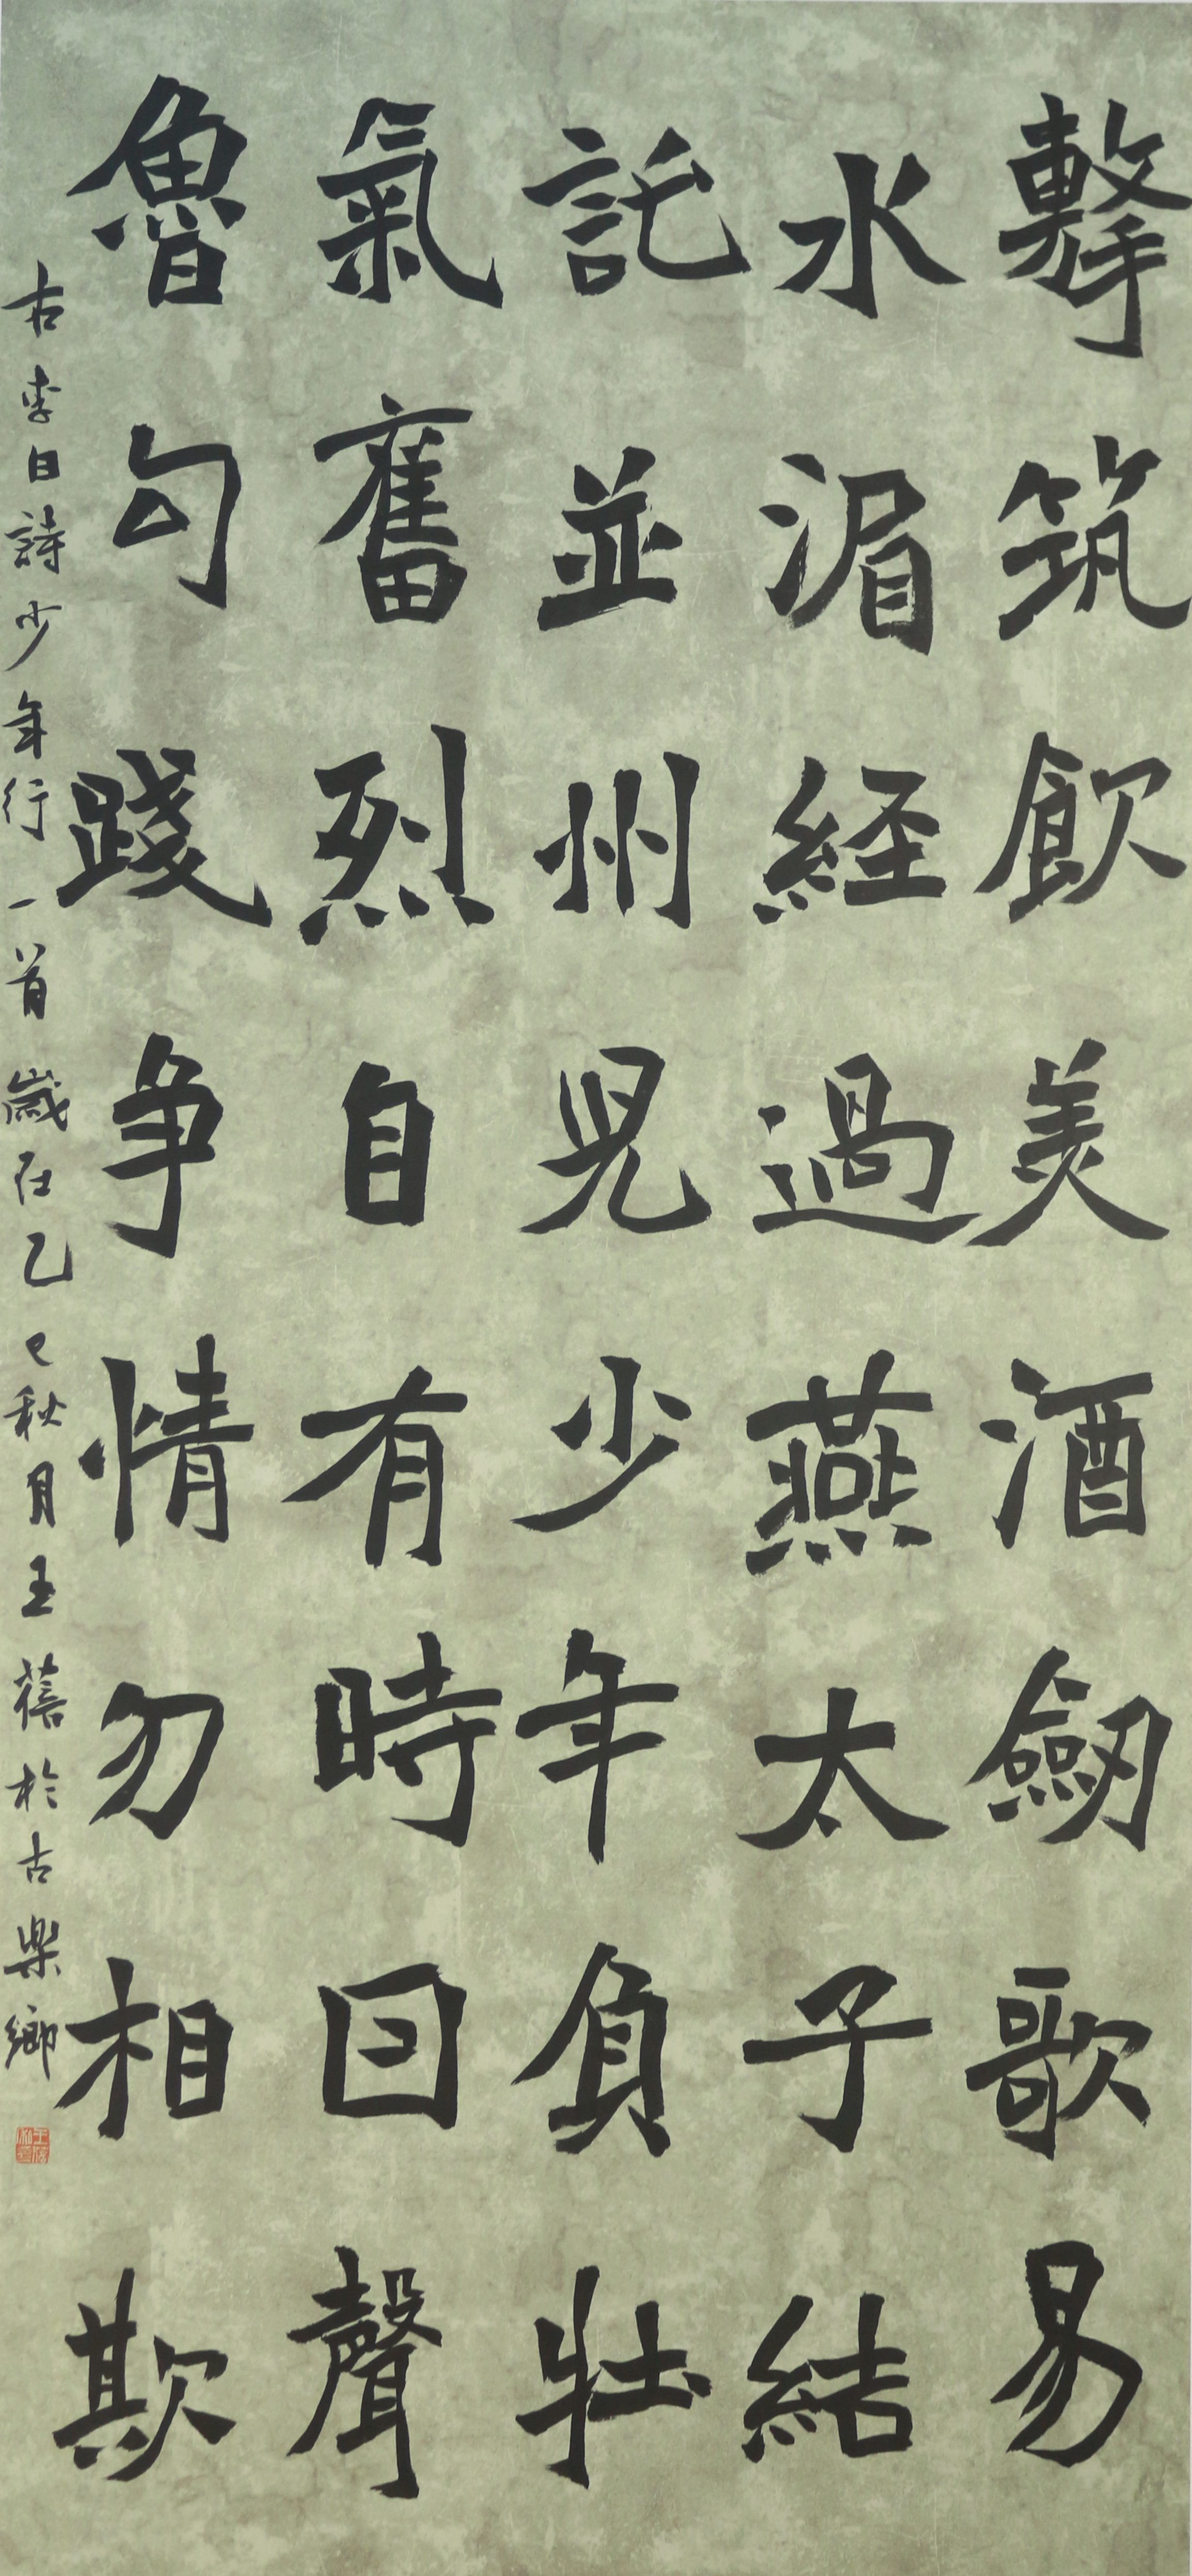 擊筑飲美酒劔歌易
水湄経過燕太子結
託並州兒少年負壯
氣奮烈自有時因聲
魯勾踐爭情勿相欺
右李白詩少年行一首歲在乙巳秋月王蓓於古樂鄉